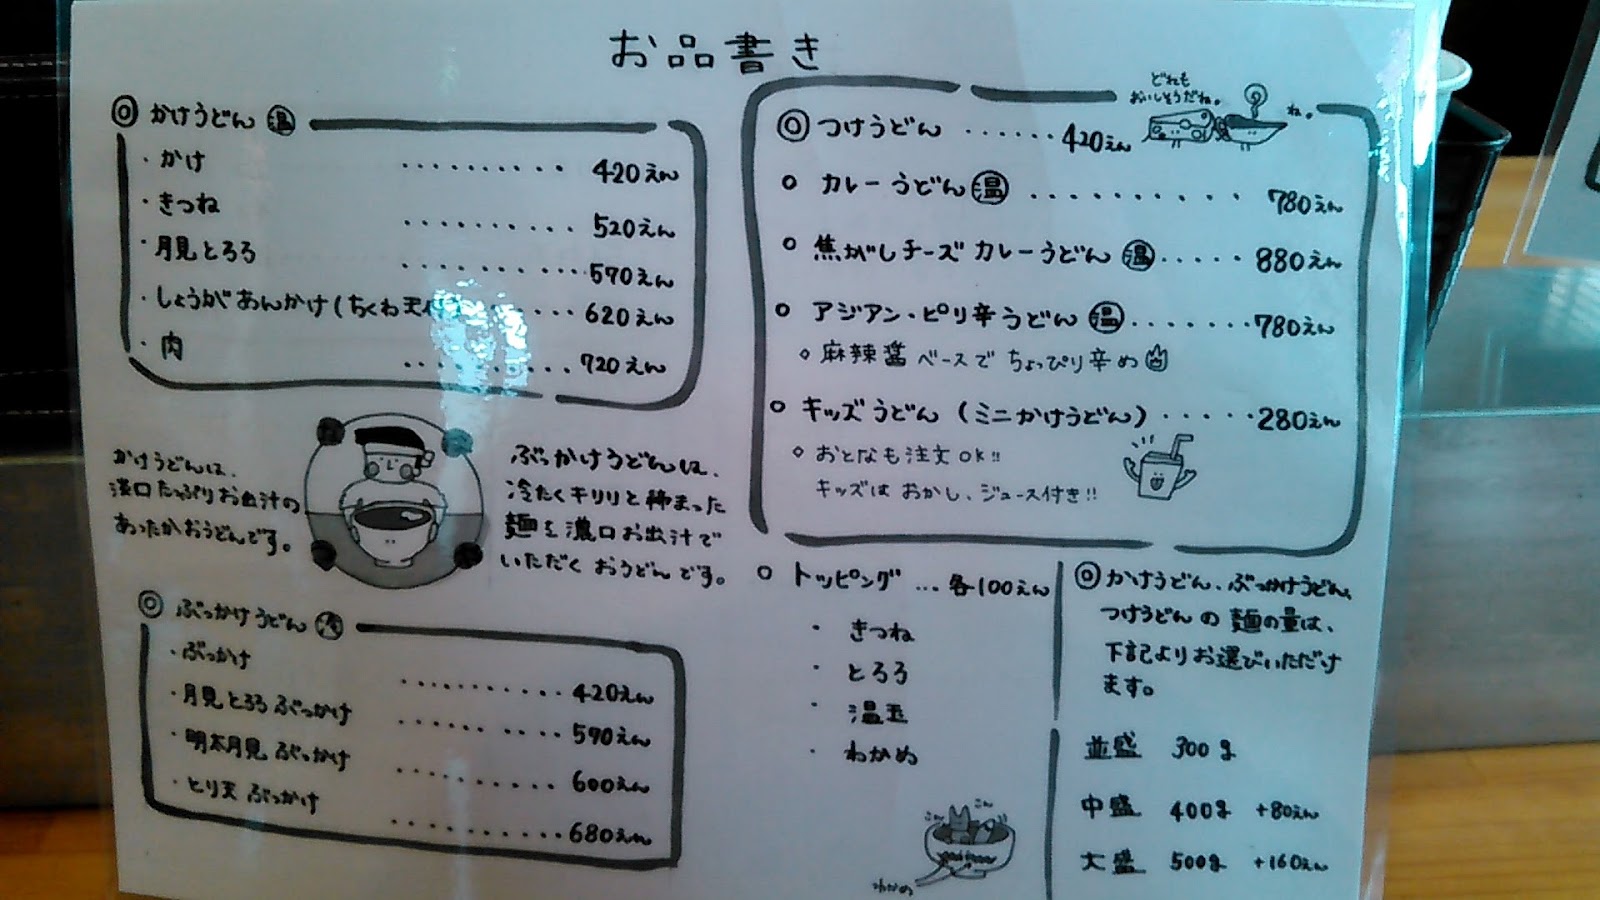 お品書き
◎ かけうどん 温
・かけ ………… 420えん
・きつね ………… 520えん
・月見とろろ ………… 570えん
・しょうがあんかけ(ちくわ天 …… 620えん
・肉 ………… 720えん
かけうどんは、
濃口たっぷりお出汁の
あったかおうどんです。
ぶっかけうどんは、
冷たくキリリと締まった
麺を濃口お出汁で
いただくおうどんです。
◎ ぶっかけうどん 冷
・ぶっかけ ………… 420えん
・月見とろろぶっかけ ………… 570えん
・明太月見ぶっかけ ………… 600えん
・とり天ぶっかけ ………… 680えん
どれも
おいしそうだね。
ね。
◎ つけうどん …… 420えん
○ カレーうどん 温 ………… 780えん
○ 焦がしチーズカレーうどん 温 …… 880えん
○ アジアン・ピリ辛うどん 温 …… 780えん
◇ 麻辣醤ベースでちょっぴり辛め
○ キッズうどん(ミニかけうどん) …… 280えん
◇ おとなも注文OK!!
キッズはおかし、ジュース付き!!
○ トッピング … 各100えん
・きつね
・とろろ
・温玉
・わかめ
こん
こん
わかめ
◎ かけうどん、ぶっかけうどん、
つけうどんの麺の量は、
下記よりお選びいただけ
ます。
並盛 300g
中盛 400g +80えん
大盛 500g +160えん